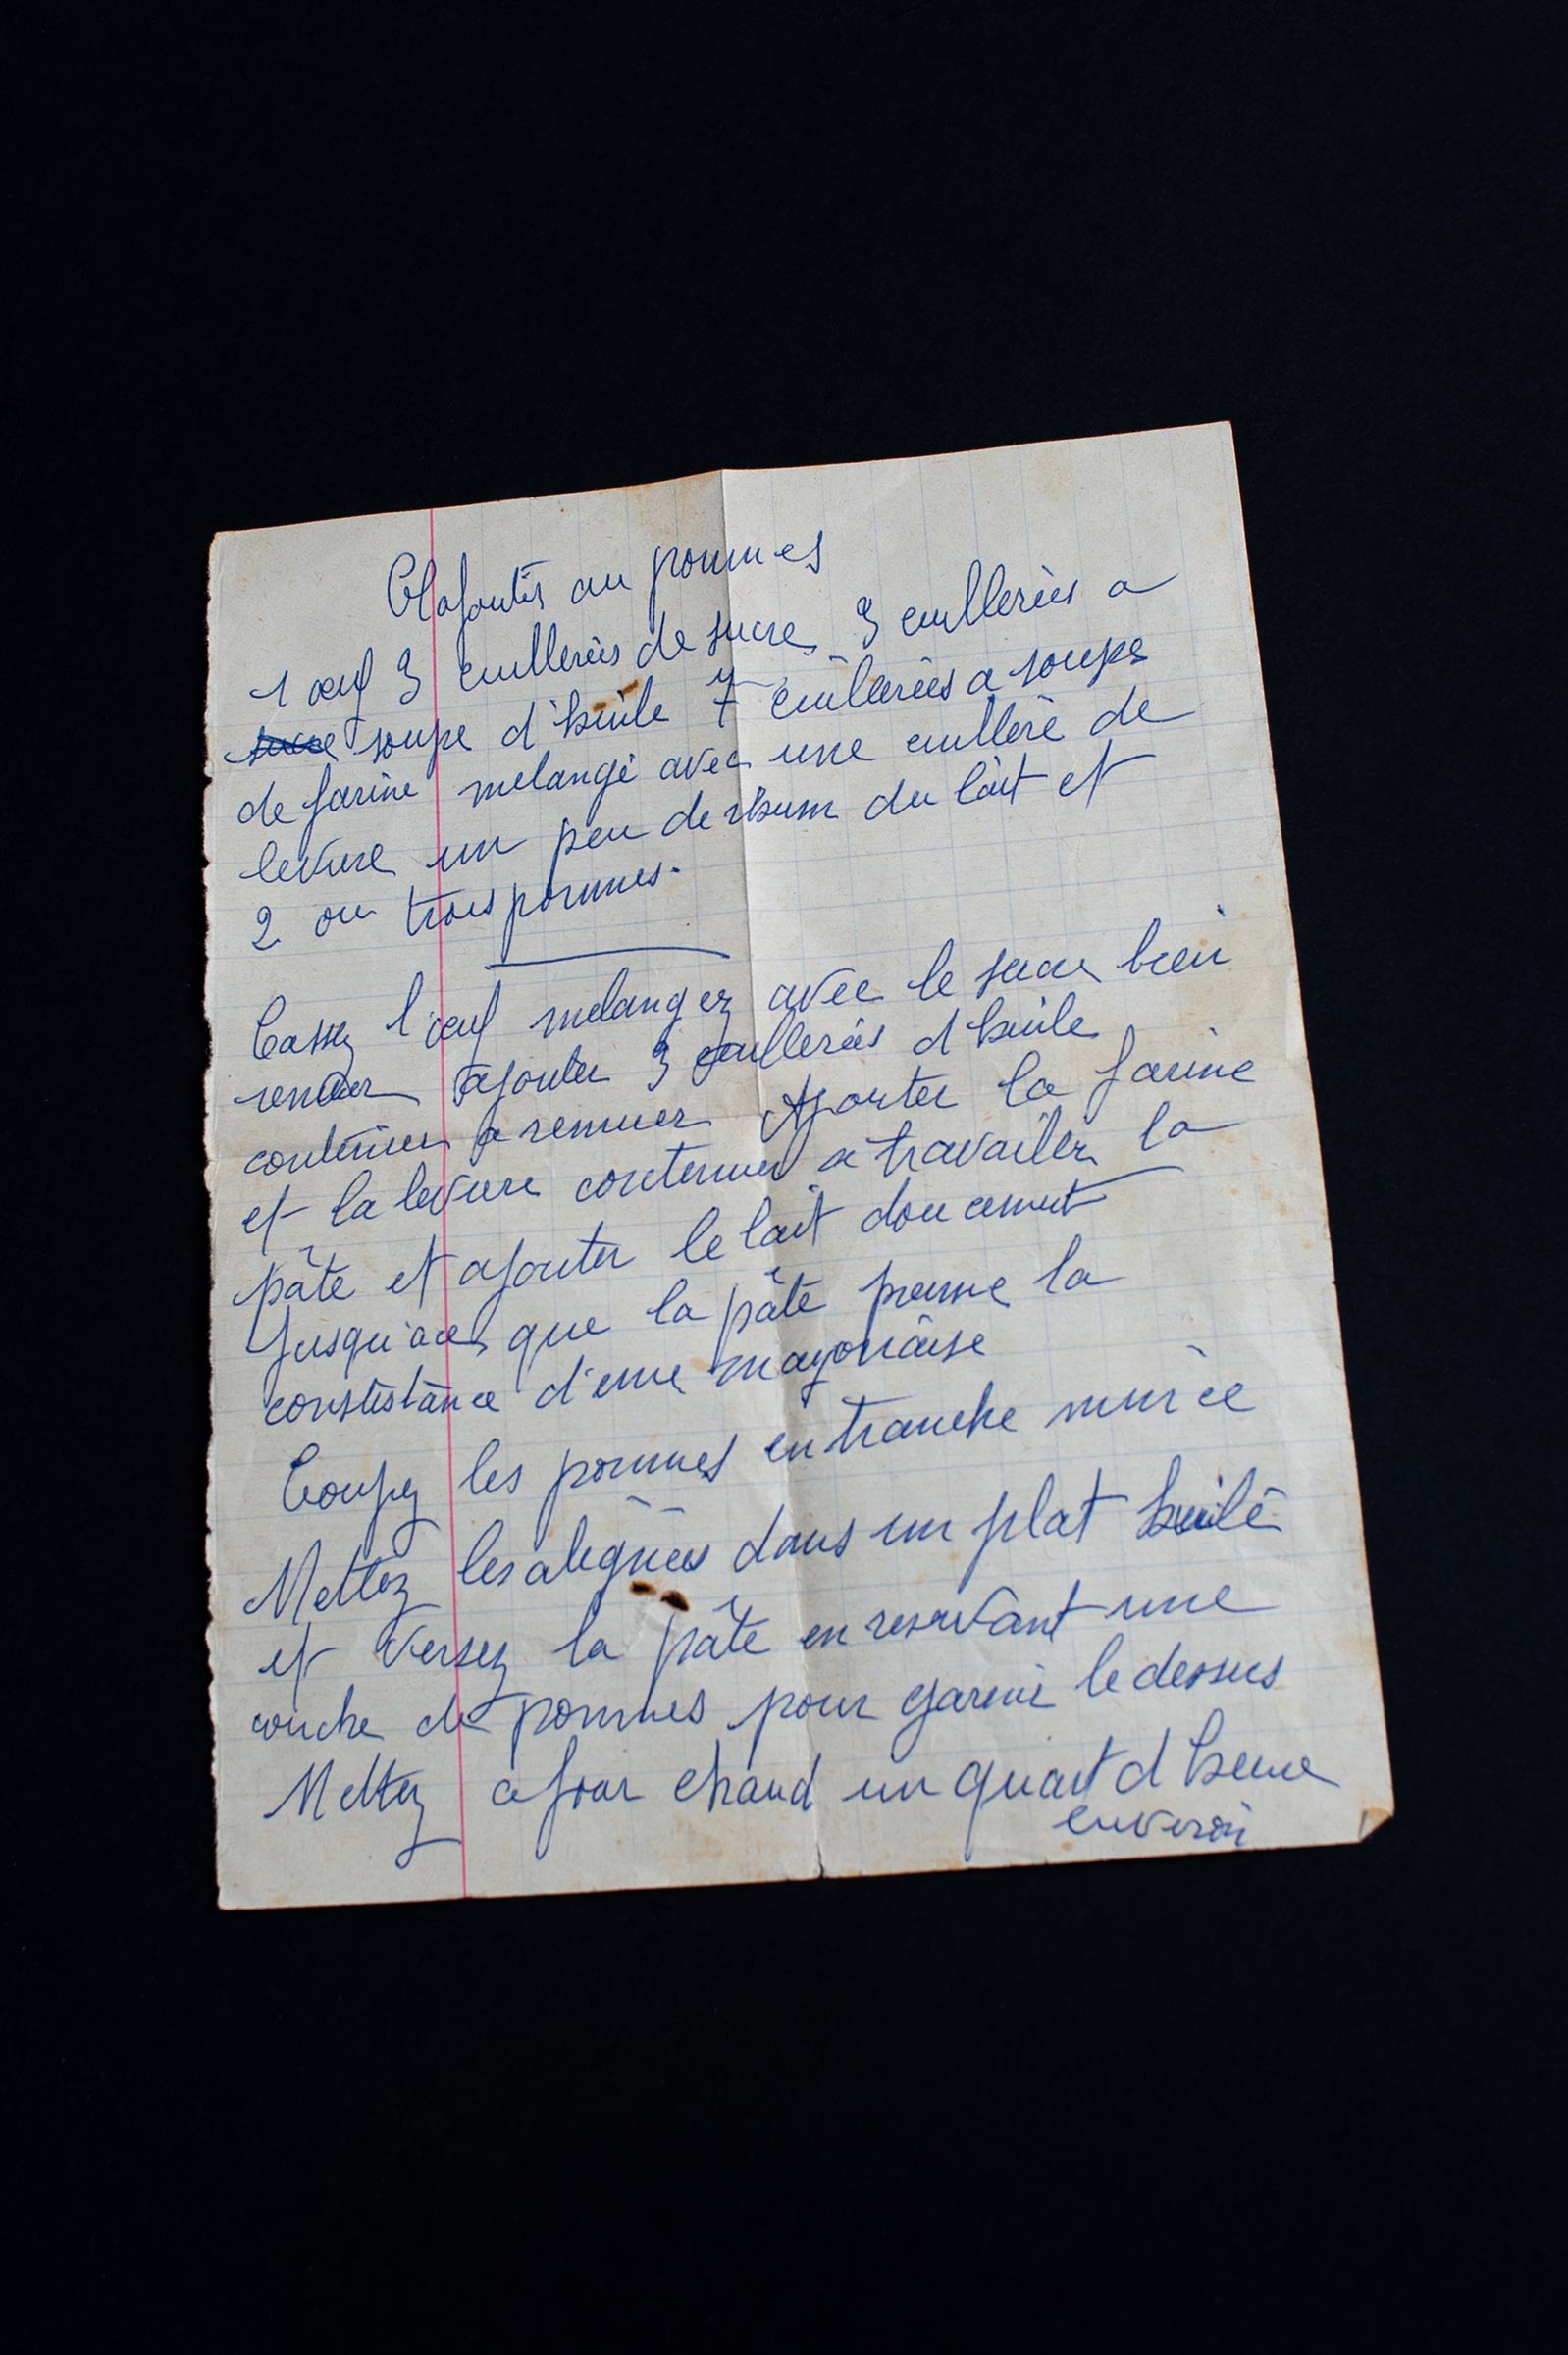 Clafoutis au pommes
1 œuf 3 cuillerées de sucre 3 cuillerées a
sucre soupe d'huile 7 cuillerées a soupe
de farine melangé avec une cuillère de
levure un peu de rhum du lait et
2 ou trois pommes.
Cassez l'œuf melangez avec le sucre bien
remuer ajouter 3 cuillerées d huile
continuer a remuer Ajouter la farine
et la levure continuer a travailler la
pâte et ajouter le lait doucement
Jusqu'ace que la pâte prenne la
consistance d'une mayonaise
Coupez les pommes en tranche mince
Mettez les alignées dans un plat huilé
et versez la pâte en reservant une
couche de pommes pour garnir le dessus
Mettez a four chaud un quart d heure
environ